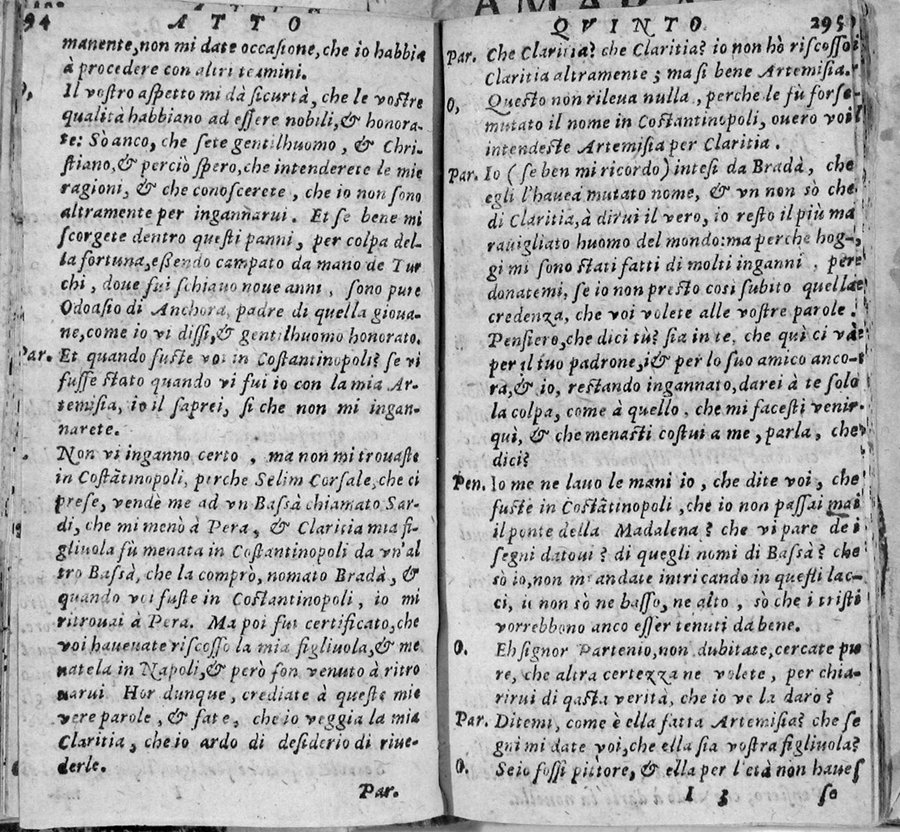 94 ATTO
manente, non mi date occasione, che io habbia
à procedere con altri termini.
O, Il vostro aspetto mi dà sicurtà, che le vostre
qualità habbiano ad essere nobili, & honora-
te: Sò anco, che sete gentilhuomo, & Chri-
stiano, & perciò spero, che intenderete le mie
ragioni, & che conoscerete, che io non sono
altramente per ingannarui. Et se bene mi
scorgete dentro questi panni, per colpa del-
la fortuna, essendo campato da mano de Tur
chi, doue fui schiauo noue anni, sono pure
Odoasio di Anchora, padre di quella gioua-
ne, come io vi dissi, & gentilhuomo honorato.
Par. Et quando fuste voi in Costantinopoli? se vi
fusse stato quando vi fui io con la mia Ar-
temisia, io il saprei, si che non mi ingan-
narete.
Non vi inganno certo, ma non mi trouaste
in Costãtinopoli, perche Selim Corsale, che ci
prese, vendè me ad vn Bassà chiamato Sar-
di, che mi menò à Pera, & Claritia mia fi-
gliuola fù menata in Costantinopoli da vn'al
tro Bassà, che la comprò, nomato Bradà, &
quando voi fuste in Costantinopoli, io mi
ritrouai à Pera. Ma poi fui certificato, che
voi haueuate riscosso la mia figliuola, & me
natela in Napoli, & però son venuto à ritro
uarui Hor dunque, crediate à queste mie
vere parole, & fate, che io veggia la mia
Claritia, che io ardo di desiderio di riue-
derle.
Par.
QVINTO. 295
Par. Che Claritia? che Claritia? io non hò riscosso
Claritia altramente; ma si bene Artemisia.
O, Questo non rileua nulla, perche le fù forse
mutato il nome in Costantinopoli, ouero voi
intendeste Artemisia per Claritia.
Par. Io (se ben mi ricordo) intesi da Bradà, che
egli l'hauea mutato nome, & vn non sò che
di Claritia, à dirui il vero, io resto il più ma
rauigliato huomo del mondo: ma perche hog-
gi mi sono stati fatti di molti inganni, per
donatemi, se io non presto così subito quella
credenza, che voi volete alle vostre parole.
Pensiero, che dici tù? sia in te, che quì ci va
per il tuo padrone, & per lo suo amico anco-
ra, & io, restando ingannato, darei à te solo
la colpa, come à quello, che mi facesti venir
quì, & che menasti costui a me, parla, che
dici?
Pen. Io me ne lauo le mani io, che dite voi, che
fuste in Costãtinopoli, che io non passai mai
il ponte della Madalena? che vi pare de i
segni datoui? di quegli nomi di Bassà? che
sò io, non m'andate intricando in questi lac-
ci, io non sò ne basso, ne alto, sò che i tristi
vorrebbono anco esser tenuti da bene.
O. Eh signor Partenio, non dubitate, cercate pu
re, che altra certezza ne volete, per chia-
rirui di q̃sta verità, che io ve la darò?
Par. Ditemi, come è ella fatta Artemisia? che se
gni mi date voi, che ella sia vostra figliuola?
O. Se io fossi pittore, & ella per l'età non haues
I 3 so